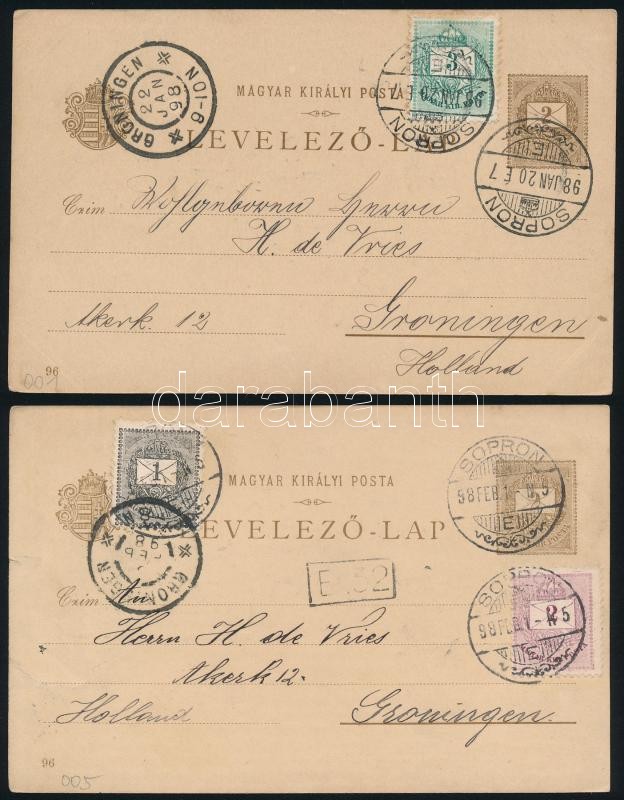 GRONINGEN
22 JAN 98
9-10N
3
SOPRON
2
MAGYAR KIRÁLYI POSTA
LEVELEZŐ-L
SOPRON
98 JAN 20 É 7
Czim
Wohlgeboren Herrn
H. de Vries
Akerk. 12
Groningen
Holland
96
001
darabanth
1
SOPRON
98 FEB 1
2
MAGYAR KIRÁLYI POSTA
LEVELEZŐ-LAP
98
2
98 FEB 1 - N 5
Czim
An
Herrn H. de Vries
Akerk 12.
Holland
Groningen.
96
005